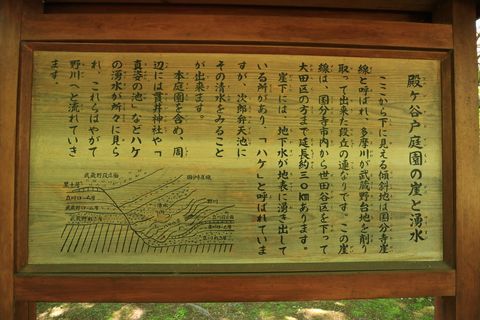 殿ヶ谷戸庭園の崖と湧水
ここから下に見える傾斜地は国分寺崖
線と呼ばれ、多摩川が武蔵野台地を削り
取って出来た段丘の連なりです。この崖
線は、国分寺市内から世田谷区を下って
大田区の方まで延長約三〇kmあります。
崖下には、地下水が地表に湧き出して
いる所があり、「ハケ」と呼ばれていま
すが、次郎弁天池に
その清水をみること
が出来ます。
本庭園を含め、周
辺には貫井神社や「
真姿の池」などハケ
の湧水が所々に見ら
れ、これらはやがて
野川へと流れていき
ます。
武蔵野段丘面
国分寺崖線
黒土層
立川ローム層
武蔵野ローム層
武蔵野れき層
野川